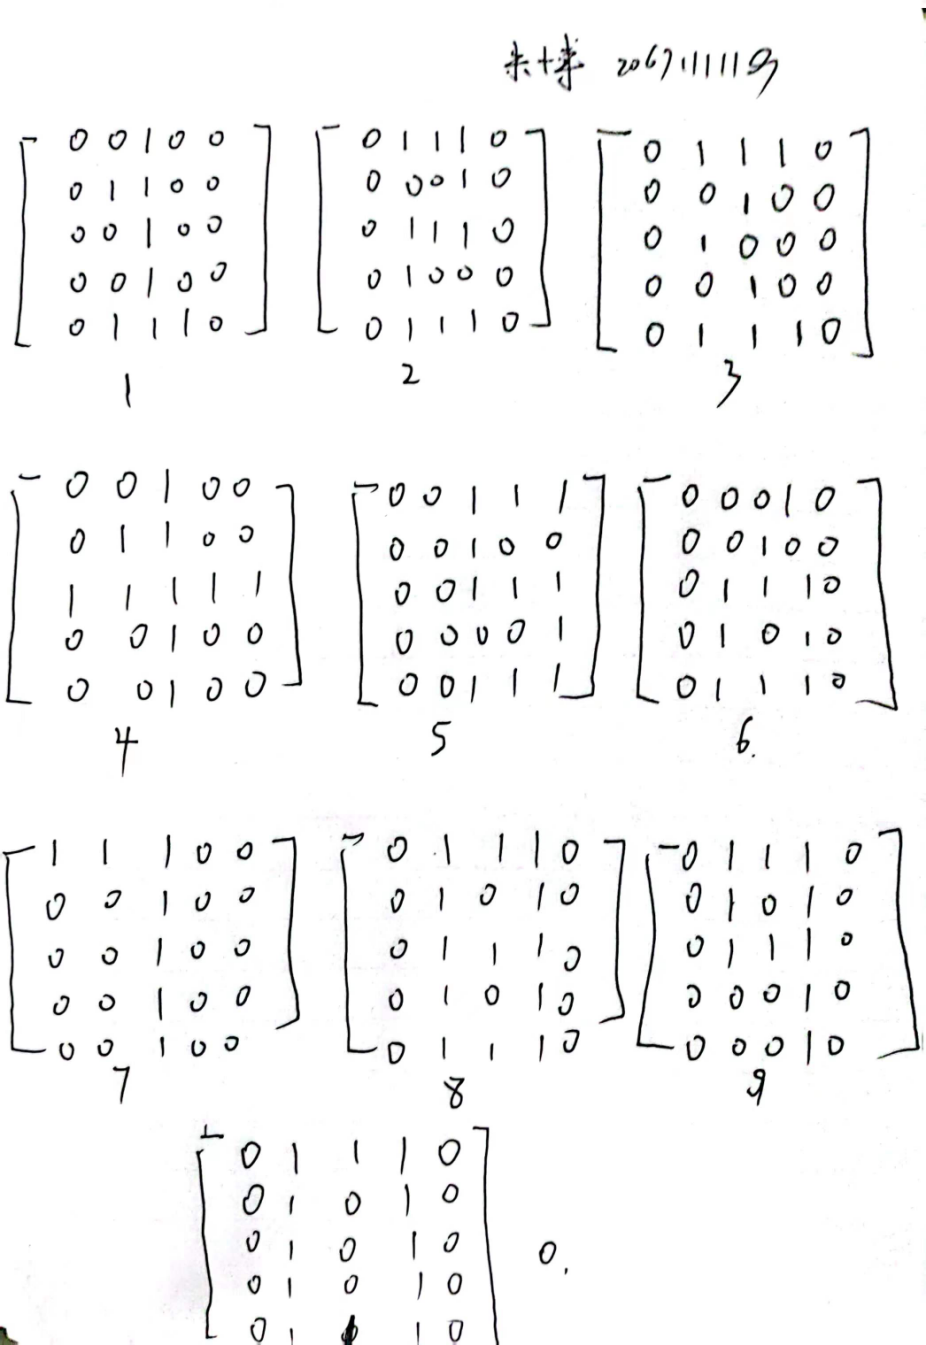 0 0 1 0 0 0 1 1 1 0 0 1 1 1 0
0 1 1 0 0 0 0 0 1 0 0 0 1 0 0
0 0 1 0 0 0 1 1 1 0 0 1 0 0 0
0 0 1 0 0 0 1 0 0 0 0 0 1 0 0
0 1 1 1 0 0 1 1 1 0 0 1 1 1 0
1 2 3
0 0 1 0 0 0 0 1 1 1 0 0 0 1 0
0 1 1 0 0 0 0 1 0 0 0 0 1 0 0
1 1 1 1 1 0 0 1 1 1 0 1 1 1 0
0 0 1 0 0 0 0 0 0 1 0 1 0 1 0
0 0 1 0 0 0 0 1 1 1 0 1 1 1 0
4 5 6.
1 1 1 0 0 0 1 1 1 0 0 1 1 1 0
0 0 1 0 0 0 1 0 1 0 0 1 0 1 0
0 0 1 0 0 0 1 1 1 0 0 1 1 1 0
0 0 1 0 0 0 1 0 1 0 0 0 0 1 0
0 0 1 0 0 0 1 1 1 0 0 0 0 1 0
7 8 9
0 1 1 1 0
0 1 0 1 0
0 1 0 1 0 0.
0 1 0 1 0
0 1 1 1 0